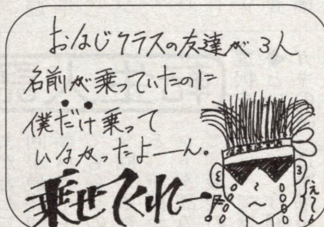 おなじクラスの友達が3人
名前が乗っていたのに
僕だけ乗って
いなかったよーん。
乗せてくれー